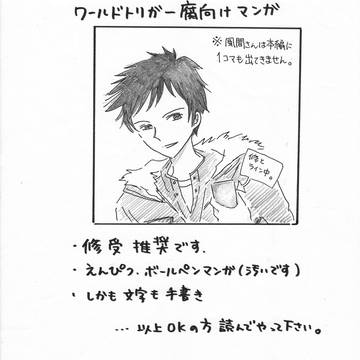 ワールドトリガー腐向けマンガ
※風間さんは本編に
1コマも出てきません。
修と
ライン中。
・修受 推奨です.
・えんぴつ、ボールペンマンガ(汚いです)
・しかも 文字も 手書き
… 以上 OKの方 読んでやって下さい。